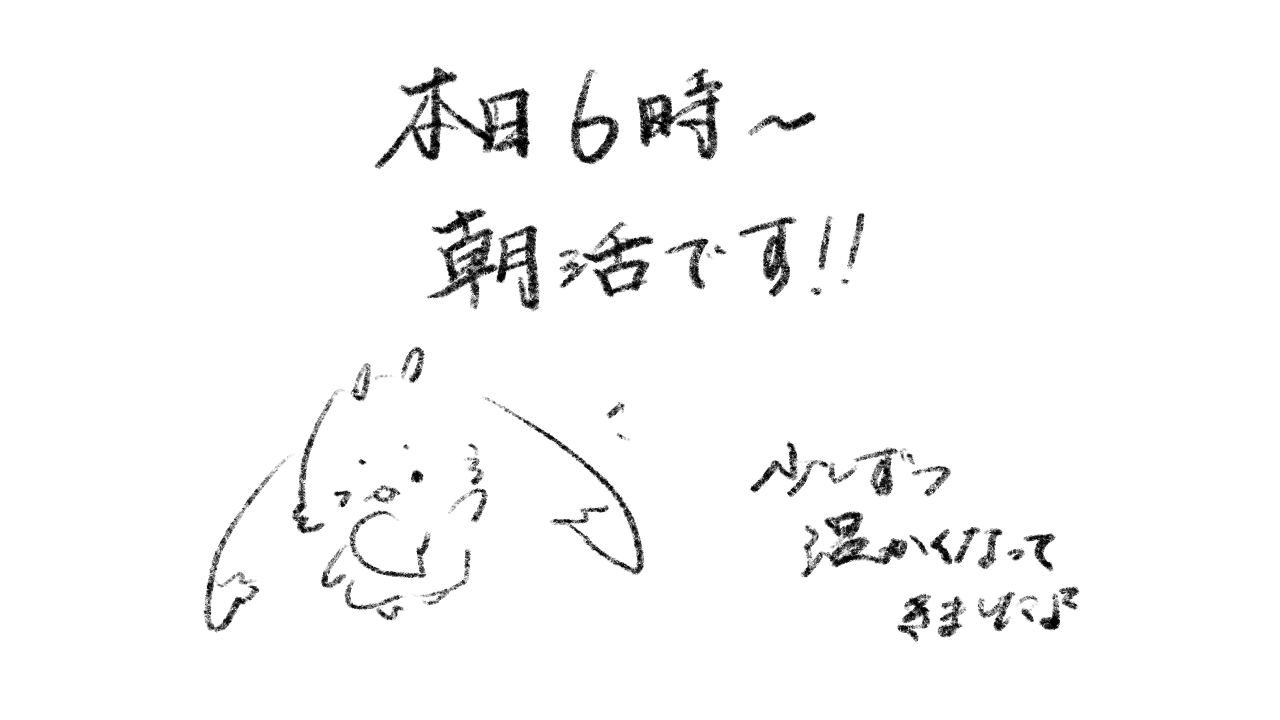 本日6時〜
朝活です!!
少しずつ
温かくなって
きました♪